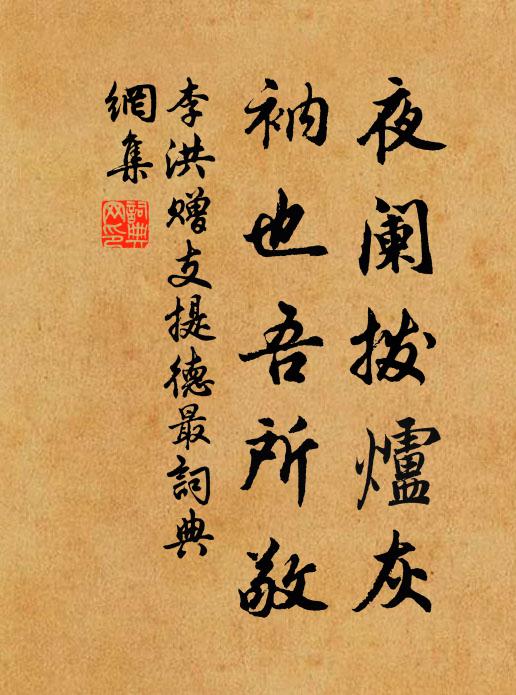 夜阑拨爐灰
衲也吾所敬
李洪赠支提德最詞典
網集
詞典
网印